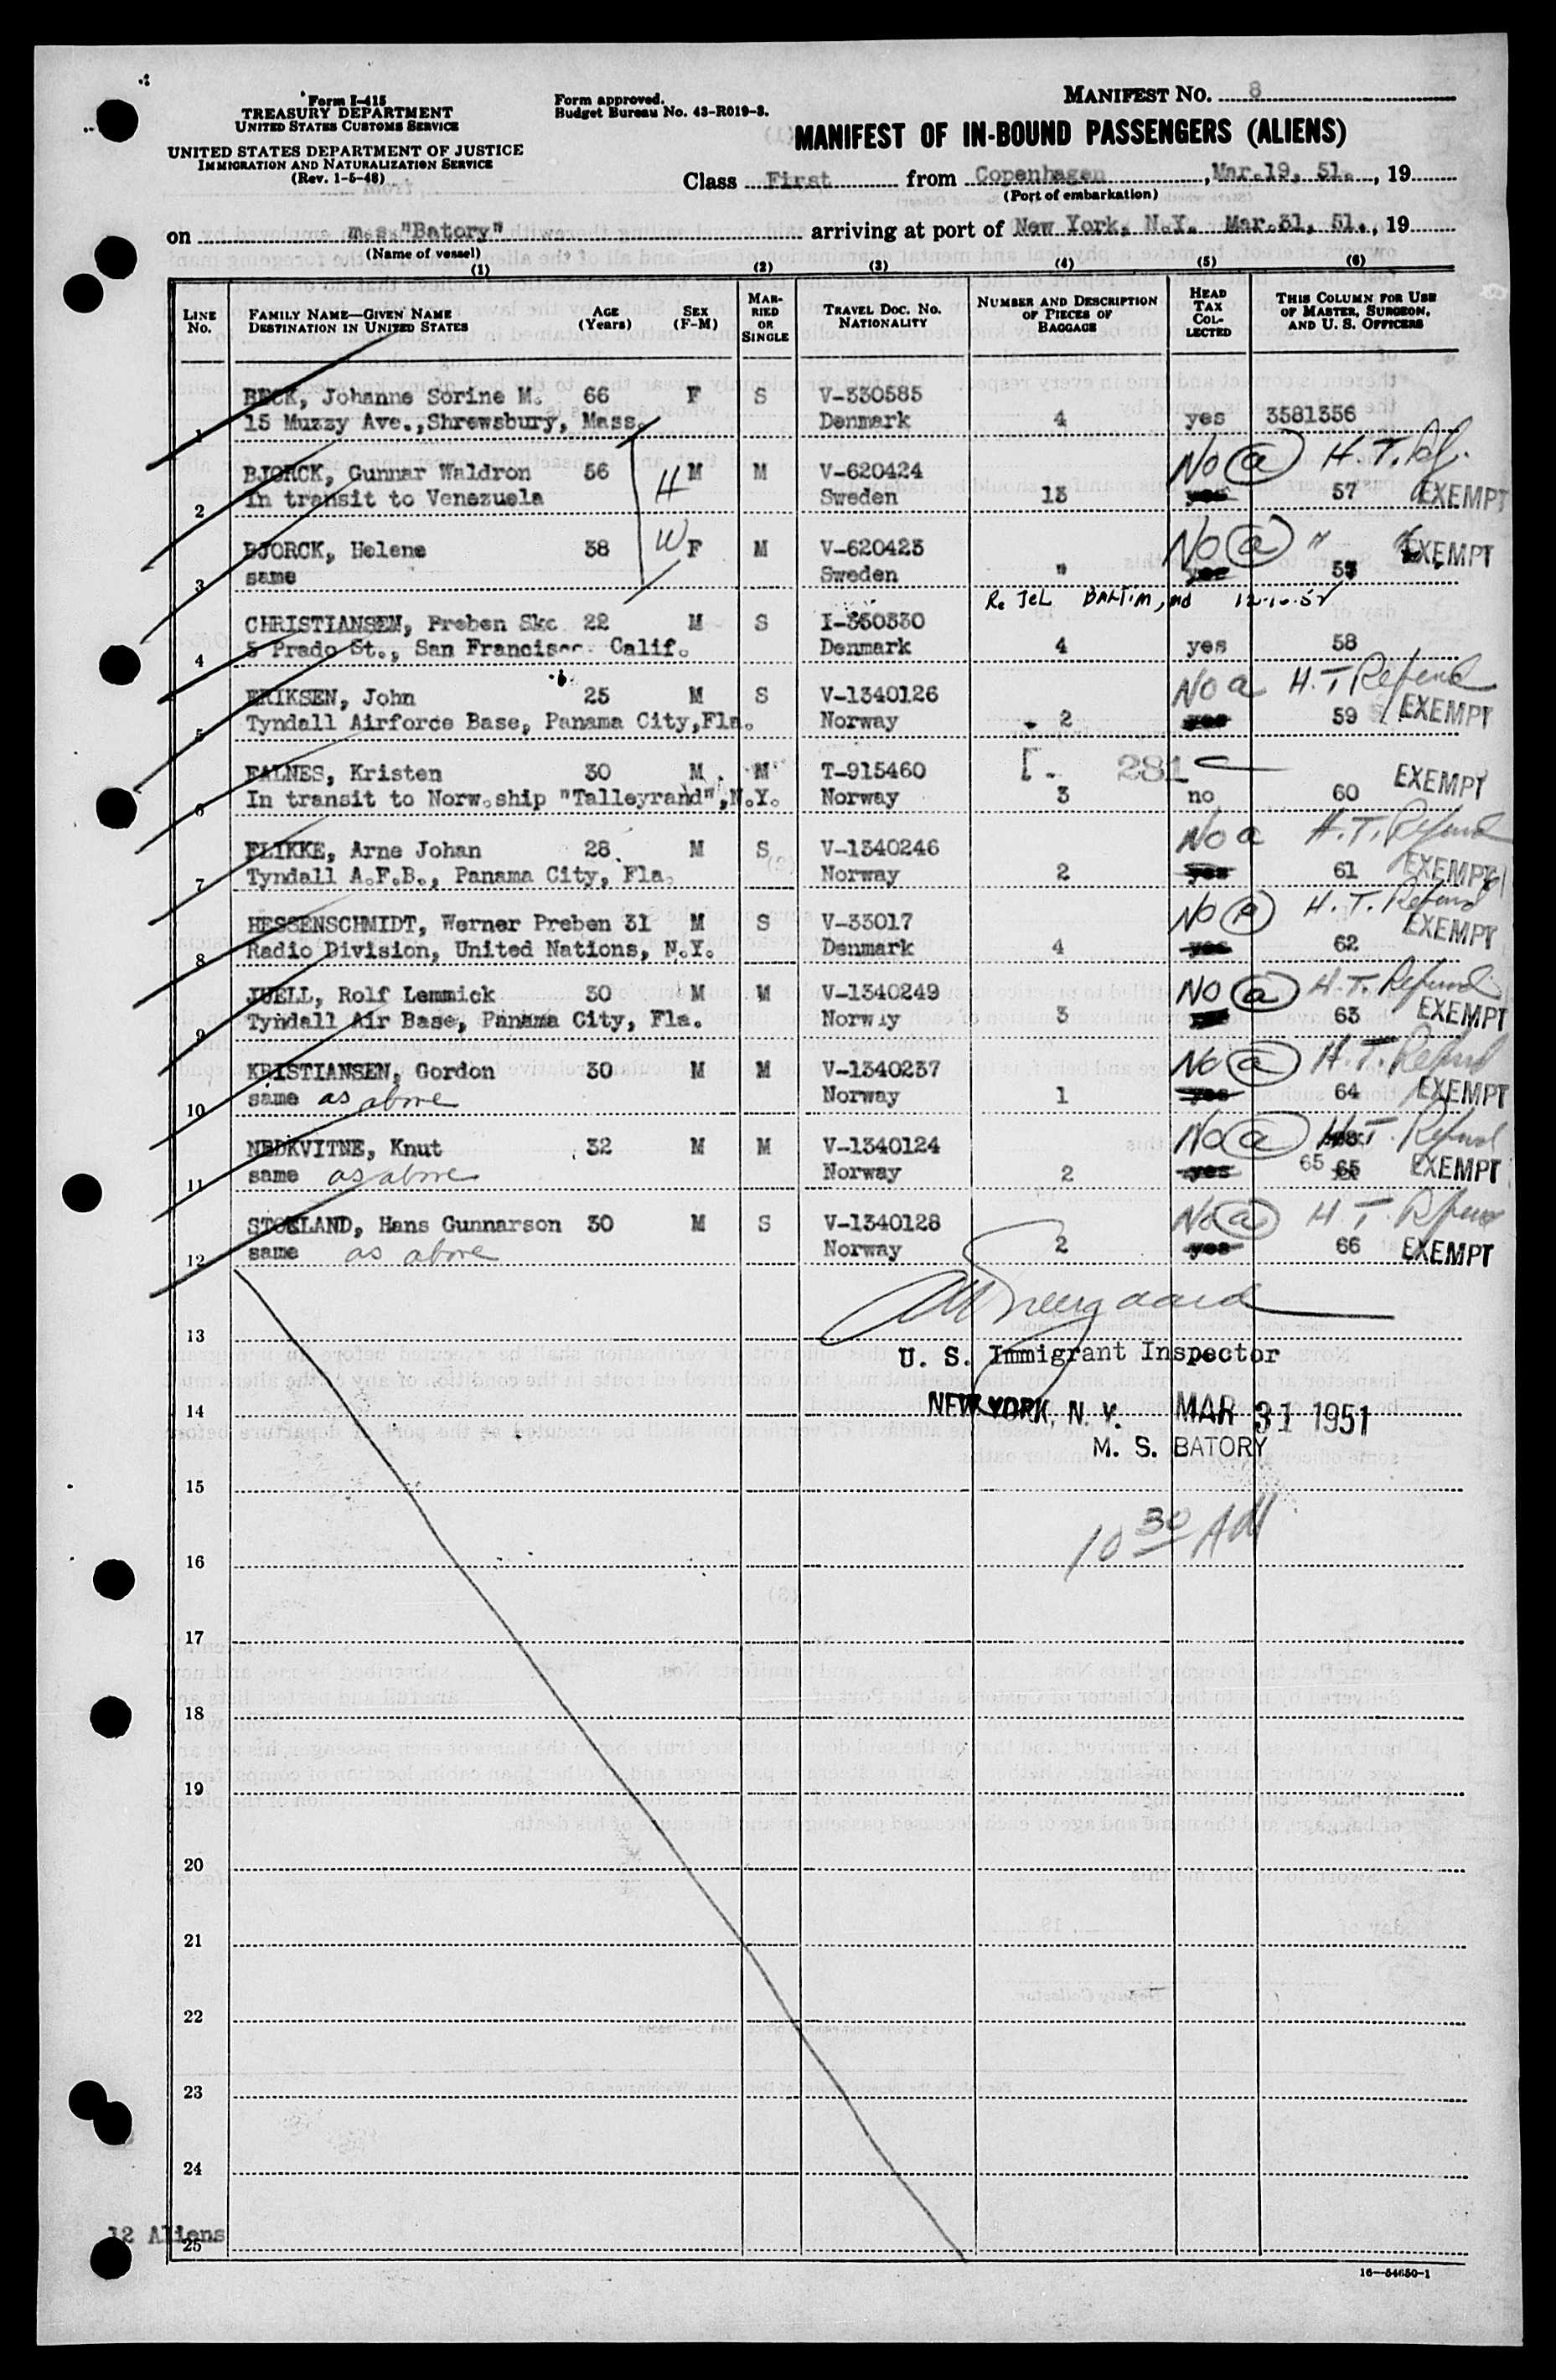 Form I-415
TREASURY DEPARTMENT
UNITED STATES CUSTOMS SERVICE
UNITED STATES DEPARTMENT OF JUSTICE
IMMIGRATION AND NATURALIZATION SERVICE
(Rev. 1-5-48)
Form approved.
Budget Bureau No. 43-R019-3.
MANIFEST NO. 8
MANIFEST OF IN-BOUND PASSENGERS (ALIENS)
Class First from Copenhagen, Mar.19, 51., 19
(Port of embarkation)
on m.s."Batory" arriving at port of New York, N.Y. Mar.31, 51., 19
(Name of vessel)
(1) (2) (3) (4) (5) (6)
LINE No. FAMILY NAME—GIVEN NAME DESTINATION IN UNITED STATES AGE (Years) SEX (F-M) MARRIED OR SINGLE TRAVEL DOC. NO. NATIONALITY NUMBER AND DESCRIPTION OF PIECES OF BAGGAGE HEAD TAX COLLECTED THIS COLUMN FOR USE OF MASTER, SURGEON, AND U. S. OFFICERS
BECK, Johanne Sorine M. 66 F S V-330585
1 15 Muzzy Ave.,Shrewsbury, Mass. Denmark 4 yes 3581356
BJORCK, Gunnar Waldron 56 H M M V-620424 No (a) H.T. Rf.
2 In transit to Venezuela Sweden 13 yes 57 EXEMPT
BJORCK, Helene 38 W F M V-620423 No (a) " " EXEMPT
3 same Sweden " yes 57
Re Tel BALTIM, md 12-16-52
CHRISTIANSEN, Preben Skc 22 M S I-350330
4 5 Prado St., San Francisco. Calif. Denmark 4 yes 58
ERIKSEN, John 25 M S V-1340126 No a H.T Refund
5 Tyndall Airforce Base, Panama City,Fla. Norway 2 yes 59 EXEMPT
FALNES, Kristen 30 M M T-915460 281 EXEMPT
6 In transit to Norw.ship "Talleyrand",N.Y. Norway 3 no 60
FLIKKE, Arne Johan 28 M S V-1340246 No a H.T. Refund
7 Tyndall A.F.B., Panama City, Fla. Norway 2 yes 61 EXEMPT
HESSENSCHMIDT, Werner Preben 31 M S V-33017 No (a) H.T. Refund EXEMPT
8 Radio Division, United Nations, N.Y. Denmark 4 yes 62
JUELL, Rolf Lemmick 30 M M V-1340249 NO (a) H.T. Refund
9 Tyndall Air Base, Panama City, Fla. Norway 3 yes 63 EXEMPT
KRISTIANSEN, Gordon 30 M M V-1340237 No (a) H.T. Refund
10 same as above Norway 1 yes 64 EXEMPT
NEDKVITNE, Knut 32 M M V-1340124 No (a) H.T. Refund
11 same as above Norway 2 yes 65 65 EXEMPT
STOELAND, Hans Gunnarson 30 M S V-1340128 No (a) H.T. Refund
12 same as above Norway 2 yes 66 EXEMPT
13
U. S. Immigrant Inspector
14 NEW YORK, N. Y. MAR 31 1951
M. S. BATORY
15
10 30 AM
16
17
18
19
20
21
22
23
24
12 Aliens
25
16—54650-1